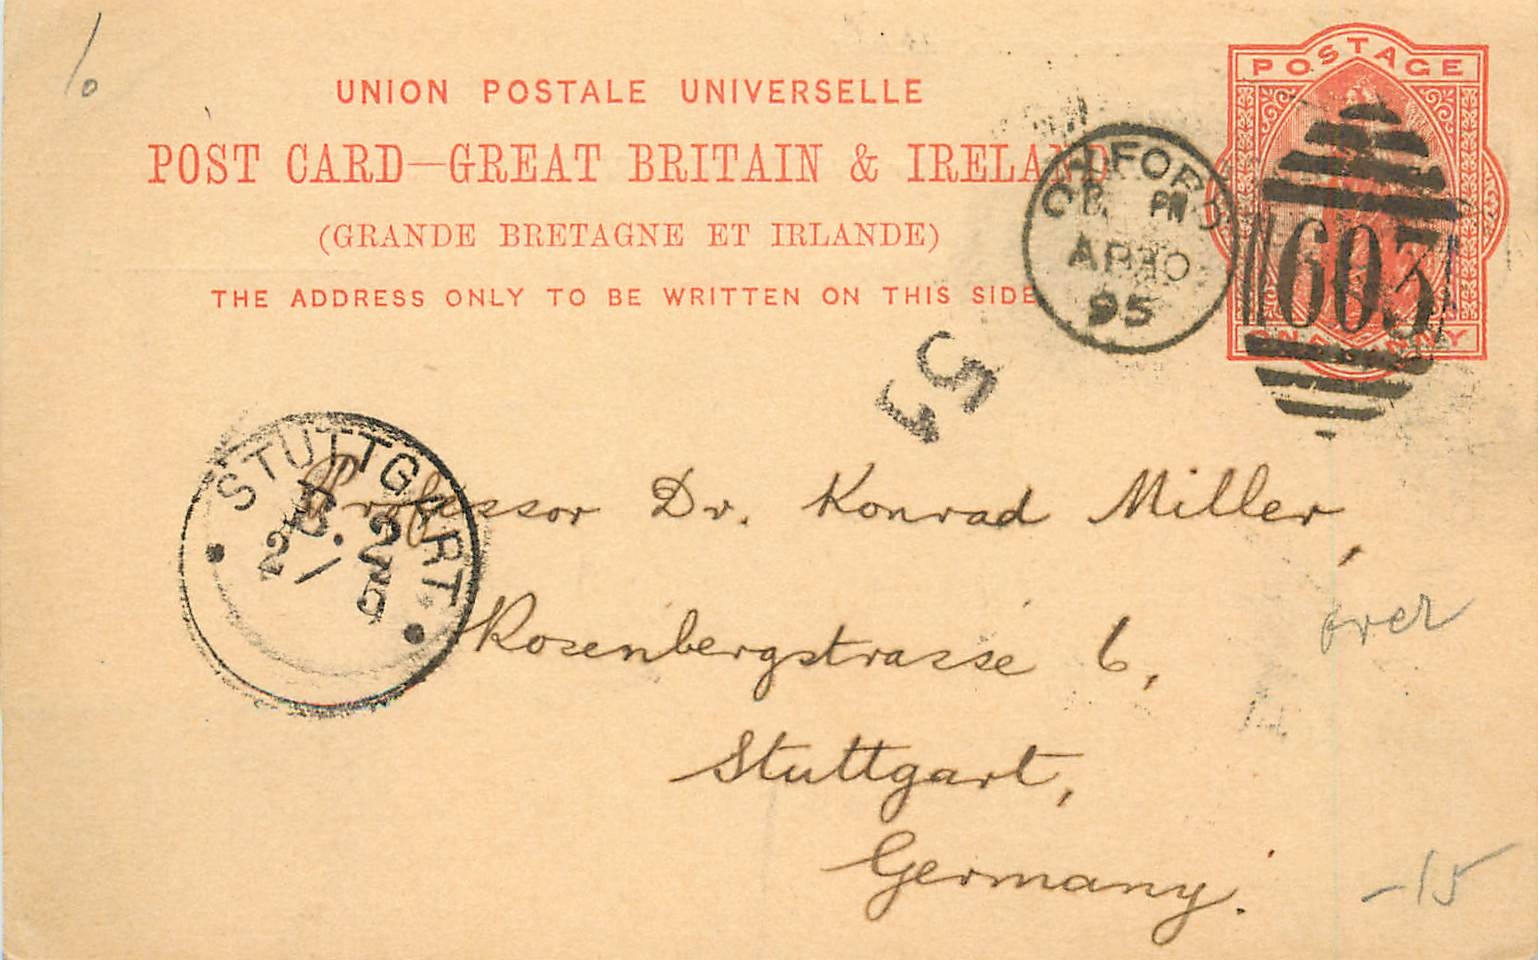 UNION POSTALE UNIVERSELLE
POST CARD—GREAT BRITAIN & IRELAND
(GRANDE BRETAGNE ET IRLANDE)
THE ADDRESS ONLY TO BE WRITTEN ON THIS SIDE
POSTAGE
ONE PENNY
OXFORD
PM
AP 30
95
603
51
STUTTGART
2
5
Professor Dr. Konrad Miller,
Rosenbergstrasse 6,
Stuttgart,
Germany.
over
-15